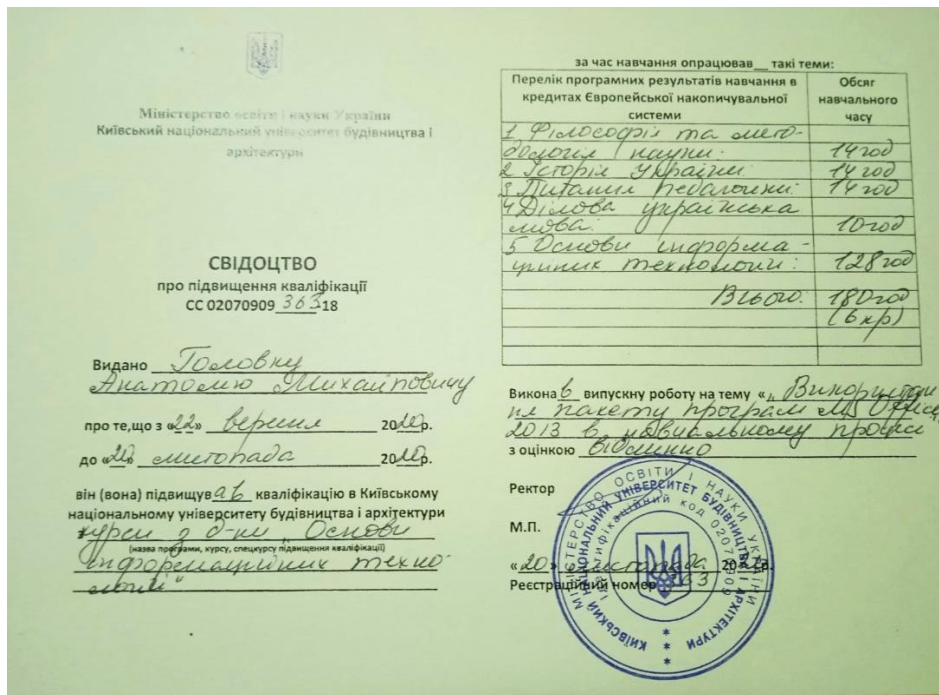 Міністерство освіти і науки України
Київський національний університет будівництва і
архітектури
СВІДОЦТВО
про підвищення кваліфікації
СС 02070909 363-18
Видано Головну
Анатолію Михайловичу
про те,що з «22» вересня 2020р.
до «20» листопада 2020р.
він (вона) підвищував кваліфікацію в Київському
національному університету будівництва і архітектури
курси з д-ни "Основи
(назва програми, курсу, спецкурсу підвищення кваліфікації)
інформаційних техно
логій"
за час навчання опрацював__ такі теми:
Перелік програмних результатів навчання в кредитах Європейської накопичувальної системи Обсяг навчального часу
1 Філософія та мето-
дологія науки: 14 год
2 Історія України: 14 год
3 Питання педагогіки: 14 год
4 Ділова українська
мова: 10 год
5 Основи информа-
ційних технологій: 128 год
Всього: 180 год
(6 кр)
Виконав випускну роботу на тему «Використан
ня пакету програм MS Office
2013 в навчальному процесі
з оцінкою відмінно
Ректор
М.П.
«20» листопада 2020р.
Реєстраційний номер 363
МІНІСТЕРСТВО ОСВІТИ І НАУКИ УКРАЇНИ
КИЇВСЬКИЙ НАЦІОНАЛЬНИЙ УНІВЕРСИТЕТ БУДІВНИЦТВА І АРХІТЕКТУРИ
Ідентифікаційний код 02070909